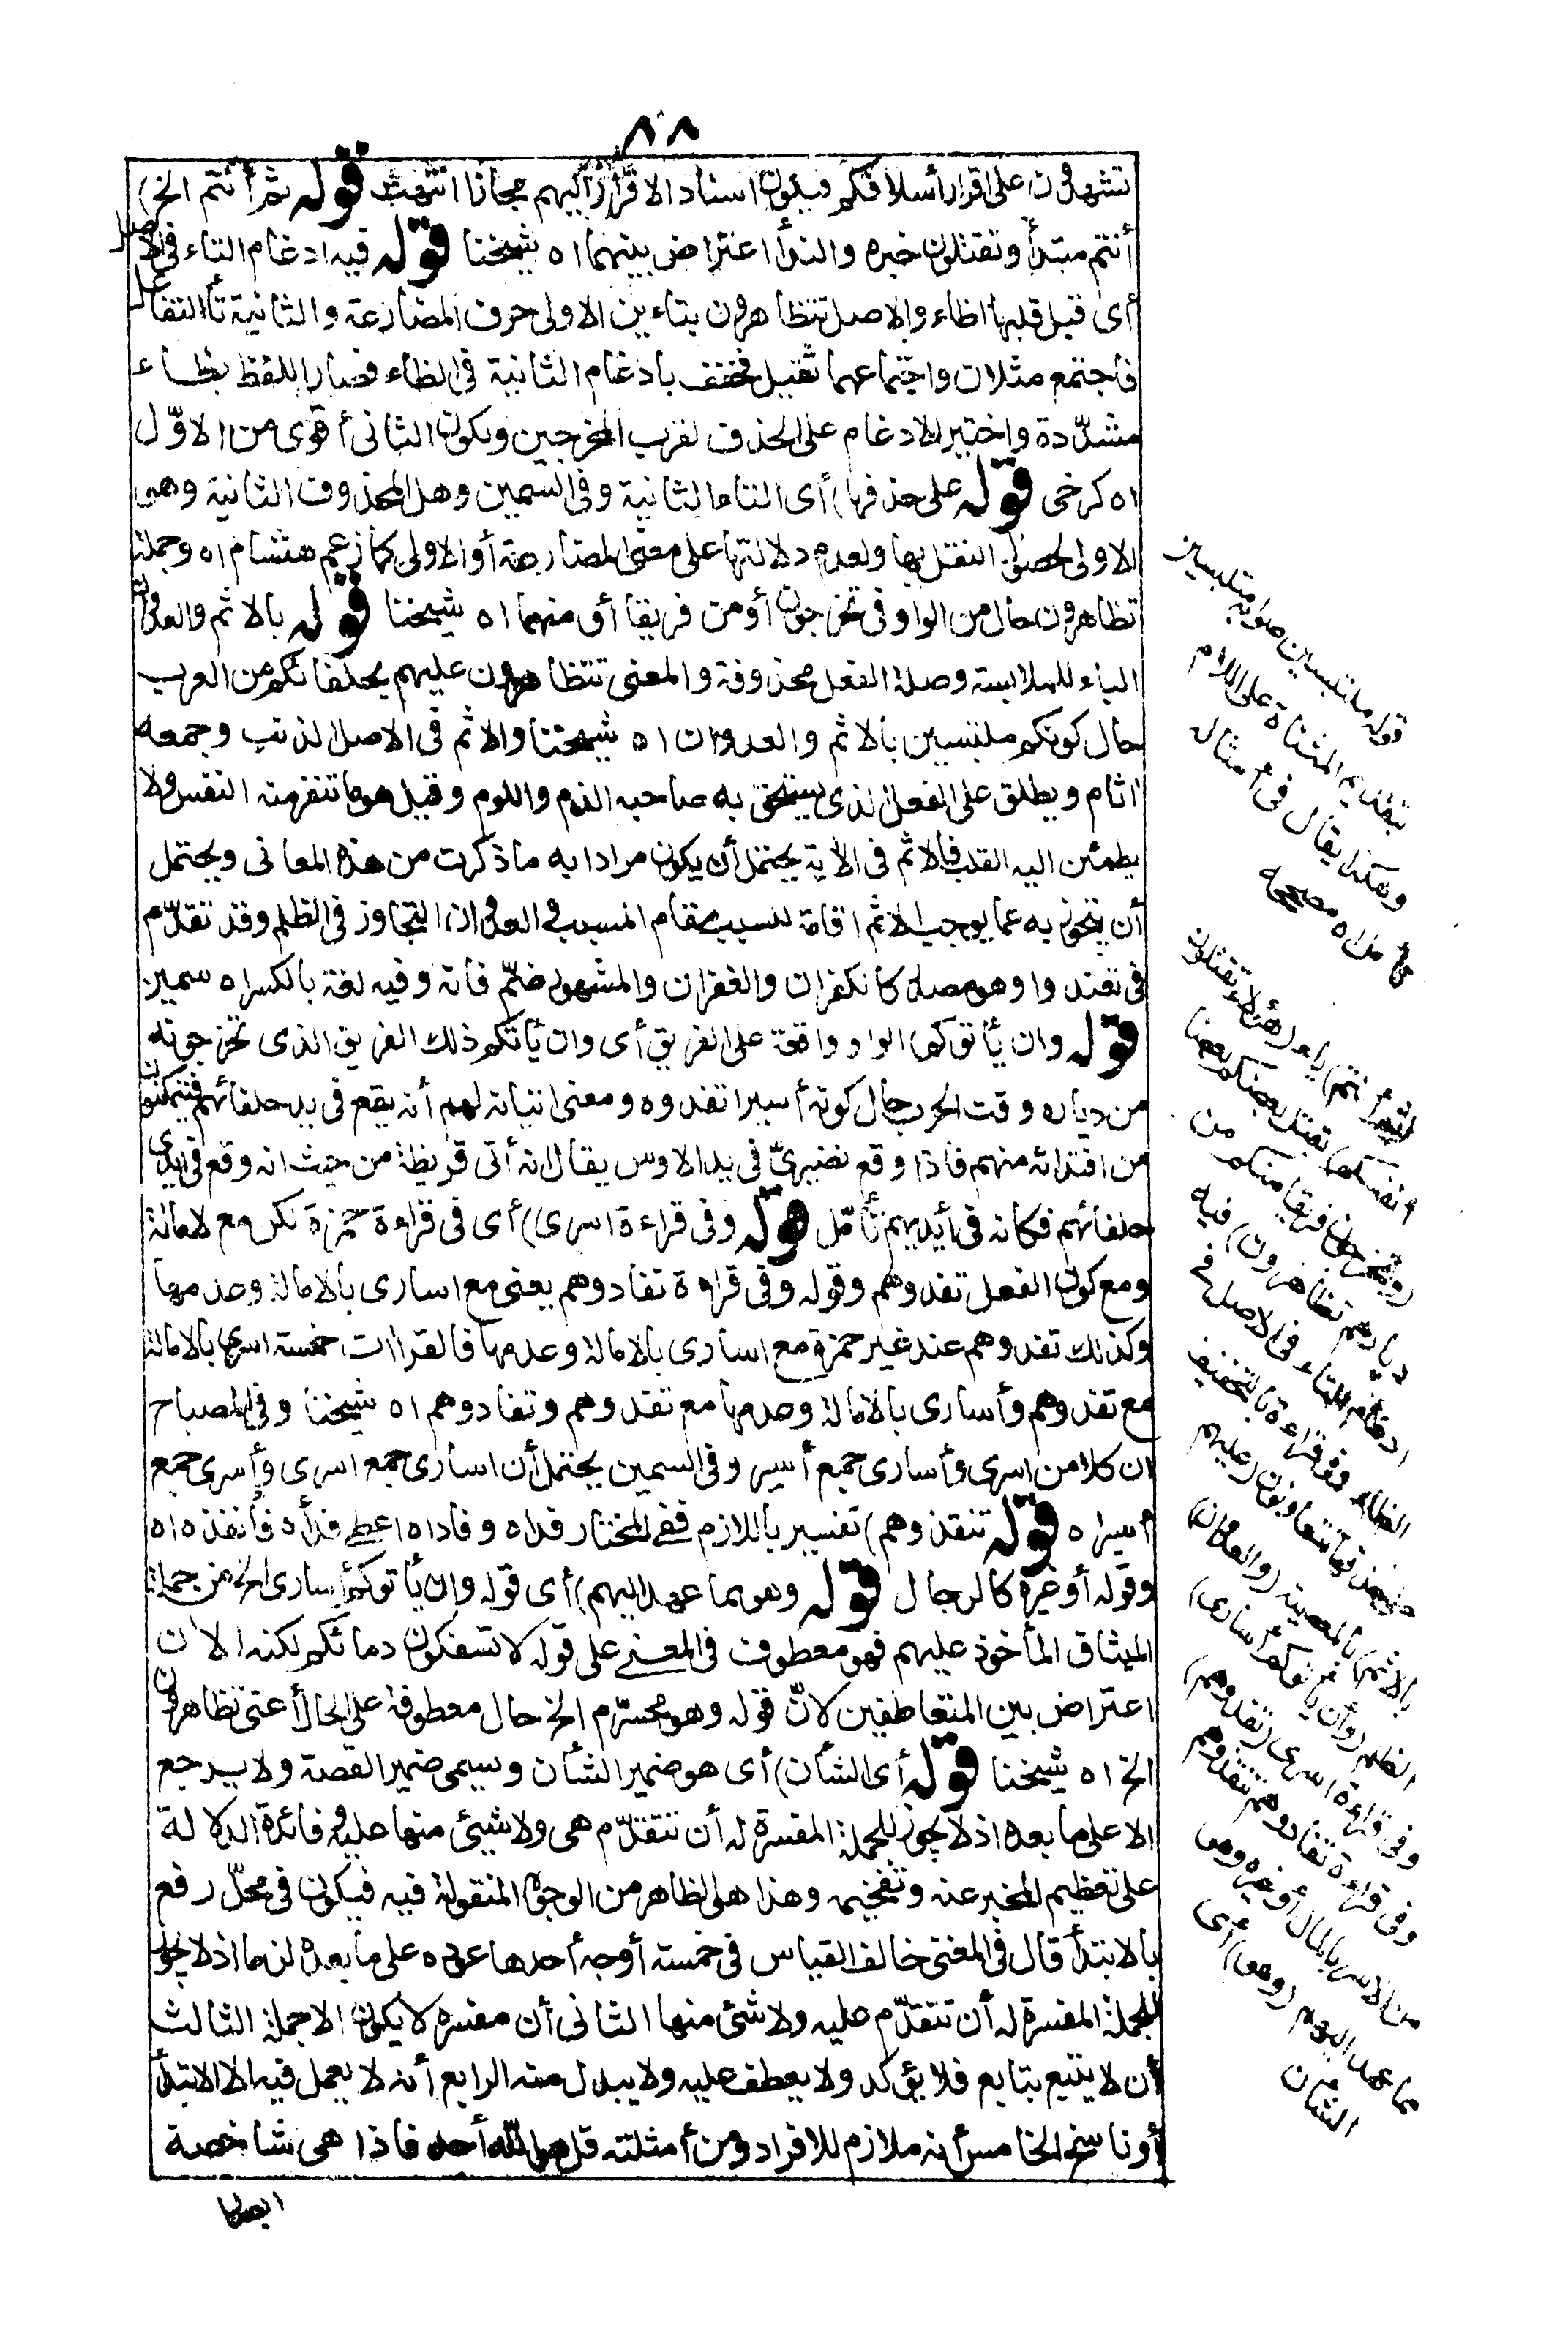 ٨٨
تشهدون على اقرار أسلافكم فيكون اسناد الاقرار اليهم مجازا انتهت قوله ثم أنتم الخ)
أنتم مبتدأ وتقتلون خبره والندأ اعتراض بينهما اه شيخنا قوله فيه ادغام التاء في الاصل
أى قبل قلبها ظاء والاصل تتظاهرون بتاءين الاولى حرف المضارعة والثانية تأ التفاعل
فاجتمع مثلان واجتماعهما ثقيل فخفف بادغام الثانية فى الظاء فصار اللفظ بظاء
مشدّدة واختير الادغام على الحذف لقرب المخرجين ويكون الثانى أقوى من الاوّل
اه كرخى قوله على حذفها) أى التاء الثانية وفى السمين وهل المحذوف الثانية وهى
الاولى لحصول الثقل بها ولعدم دلالتها على معنى المضارعة أو الاولى كما زعم هشام اه وجملة
تظاهرون حال من الواو فى تخرجون أو من فريقا أو منهما اه شيخنا قوله بالاثم والعدوان
الباء للملابسة وصلة الفعل محذوفة والمعنى تتظاهرون عليهم بحلفائكم من العرب
حال كونكم ملتبسين بالاثم والعدوان اه شيخنا والاثم فى الاصل الذنب وجمعه
اثام ويطلق على الفعل الذى يستحق به صاحبه الذم واللوم وقيل هو ما تنفر منه النفس ولا
يطمئن اليه القلب فالاثم فى الاٰية يحتمل أن يكون مرادا به ما ذكرت من هذه المعانى ويحتمل
أن يتجوز به عما يوجب الاثم اقامة للسبب مقام المسبب والعدوان التجاوز فى الظلم وقد تقدّم
فى تعتدوا وهو مصدر كالكفران والغفران والمشهور ضمّ فائه وفيه لغة بالكسر اه سمين
قوله وان يأتوكم) الواو واقعة على الفريق أى وان يأتكم ذلك الفريق الذى تخرجونه
من دياره وقت الحرب حال كونه أسيرا تفدوه ومعنى اتيانه لهم أنه يقع فى يد حلفائهم فيتمكنون
من افتدائه منهم فاذا وقع نضيرىّ فى يد الاوس يقال انه أتى قريظة من حيث انه وقع فى أيدى
حلفائهم فكانه فى أيديهم تأمّل قوله وفى قراءة اسرى) أى فى قراءة حمزة لكن مع الامالة
ومع كون الفعل تفدوهم وقوله وفى قراءة تفادوهم يعنى مع اسارى بالامالة وعدمها
وكذلك تفدوهم عند غير حمزة مع اسارى بالامالة وعدمها فالقراات خمسة اسرى بالامالة
مع تفدوهم وأسارى بالامالة وعدمها مع تفدوهم وتفادوهم اه شيخنا وفى المصباح
ان كلا من اسرى وأسارى جمع أسير وفى السمين يحتمل أن اسارى جمع اسرى وأسرى جمع
أسير اه قوله تنقذوهم) تفسير باللازم ففى المختار فداه وفاداه اعطى فدأه فأنقذه اه
وقوله أو غيره كالرجال قوله وهو مما عهد اليهم) أى قوله وان يأتوكم أسارى الخ من جملة
الميثاق المأخوذ عليهم فهو معطوف فى المعنى على قوله لا تسفكون دمائكم لكنه الاٰن
اعتراض بين المتعاطفين لانّ قوله وهو محرّم الخ حال معطوفة على الحال أعنى تظاهرون
الخ اه شيخنا قوله أى الشأن) أى هو ضمير الشأن ويسمى ضمير القصة ولا يرجع
الا على ما بعده اذ لا يجوز للجملة المفسرة له أن تتقدّم هى ولا شيئ منها عليه وفائدة الدلالة
على تعظيم المخبر عنه وتفخيمه وهذا هو الظاهر من الوجوه المنقولة فيه فيكون فى محلّ رفع
بالابتدأ قال فى المغنى خالف القياس فى خمسة أوجه أحدها عوده على ما بعده لزوما اذ لا يجوز
للجملة المفسرة له أن تتقدّم عليه ولا شئ منها الثانى أن مفسره لا يكون الا جملة الثالث
أن لا يتبع بتابع فلا يؤكد ولا يعطف عليه ولا يبدل منه الرابع أنه لا يعمل فيه الا الابتدأ
أو ناسخ الخامس أنه ملازم للافراد ومن أمثلته قل هو الله أحد فاذا هى شاخصة
ابصار
قوله ملتبسين صوابه متلبسين
بتقديم المثناة على اللام
وهكذا يقال فى أمثاله
اه مصححه
(ثم أنتم) يا (هؤلاء تقتلون
أنفسكم) بقتل بعضكم بعضا
(وتخرجون فريقا منكم من
ديارهم تظاهرون) فيه
ادغام التاء فى الاصل فى
الظاء وفى قراءة بالتخفيف
على حذفها تتعاونون (عليهم
بالاثم) بالمعصية (والعدوان)
الظلم (وان يأتوكم أسارى)
وفى قراءة اسرى (تفدوهم)
وفى قراءة تفادوهم تنقذوهم
من الاسر بالمال أو غيره وهو
مما عهد اليهم (وهو) أى
الشأن